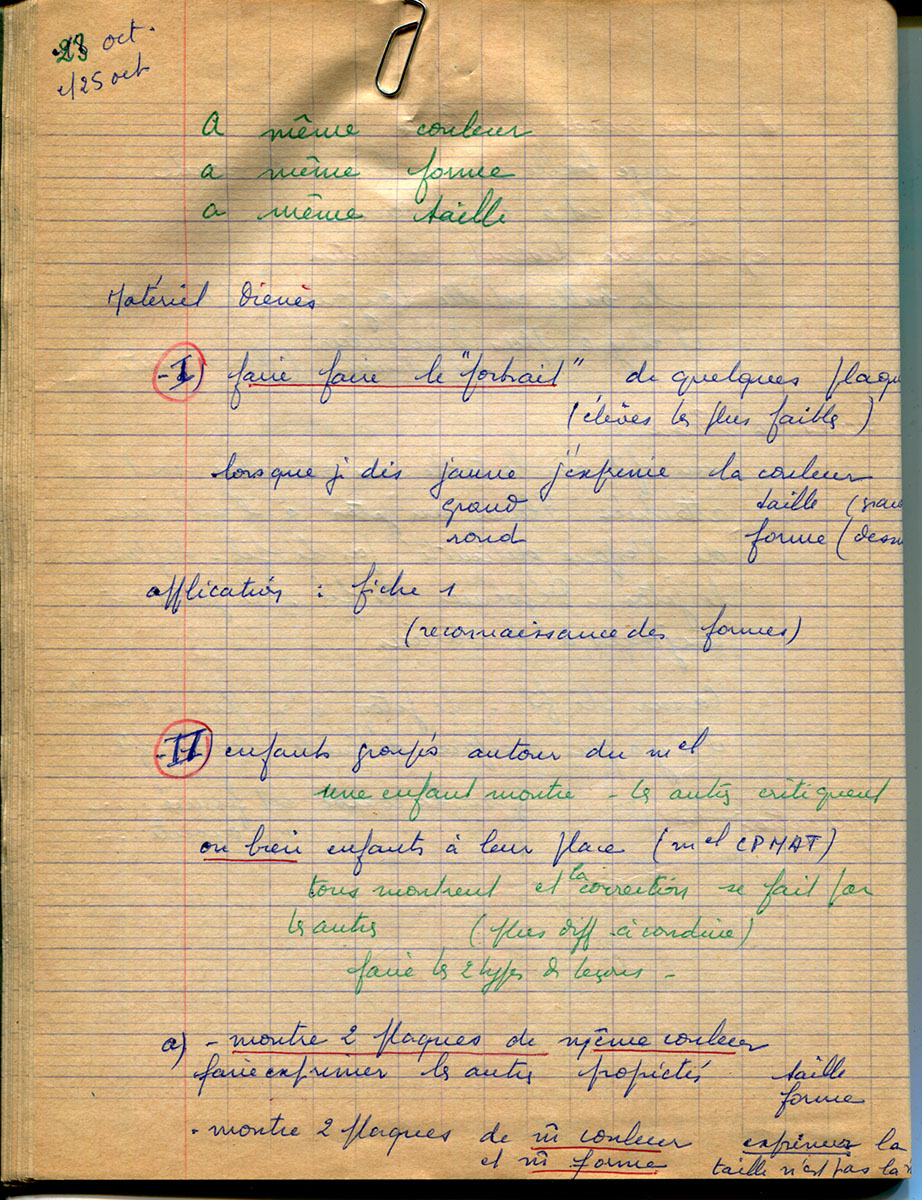 23 oct.
et 25 oct
a même couleur
a même forme
a même taille
Matériel Dienès
-I) faire faire le "portrait" de quelques plaqu
(élèves les plus faibles)
lorsque je dis jaune j'exprime la couleur
grand taille (gran
rond forme (dessi
application : fiche 1
(reconnaissance des formes)
-II) enfants groupés autour du mel
une enfant montre - les autres critiquent
ou bien enfants à leur place (mel CPMAT)
tous montrent et la correction se fait par
les autres (plus diff. à conduire)
faire les 2 types de leçons -
a) - montre 2 plaques de même couleur
faire exprimer les autres propriétés taille
forme
- montre 2 plaques de m̄ couleur exprimer la
et m̄ forme taille n'est pas la